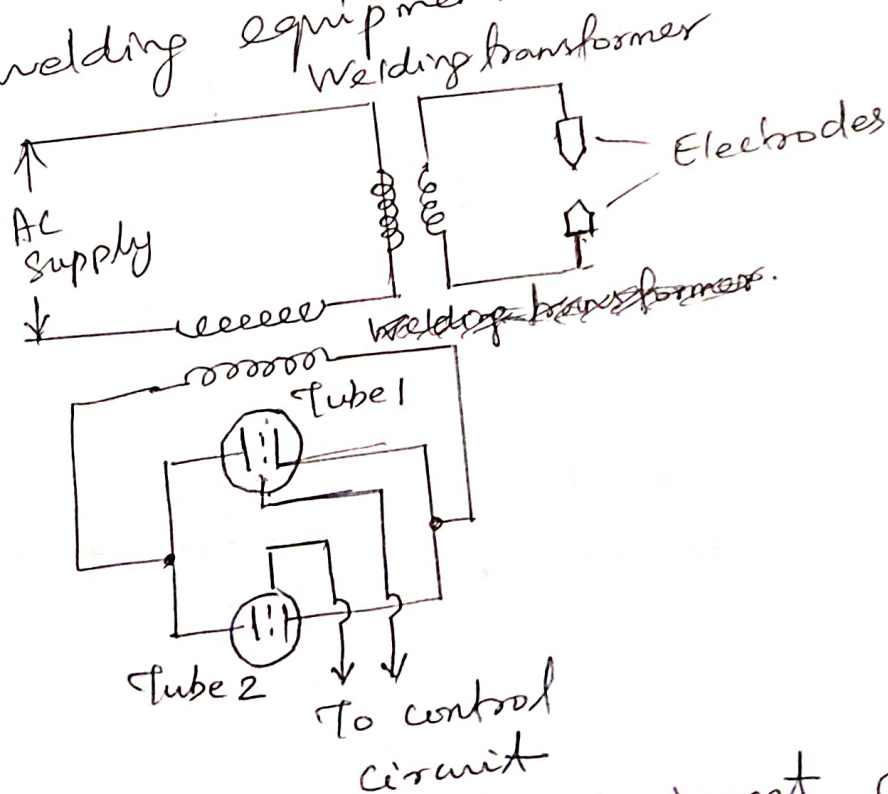 welding
Welding transformer
Electrodes
AC
Supply
Welding transformer.
Tube 1
Tube 2
To control
circuit